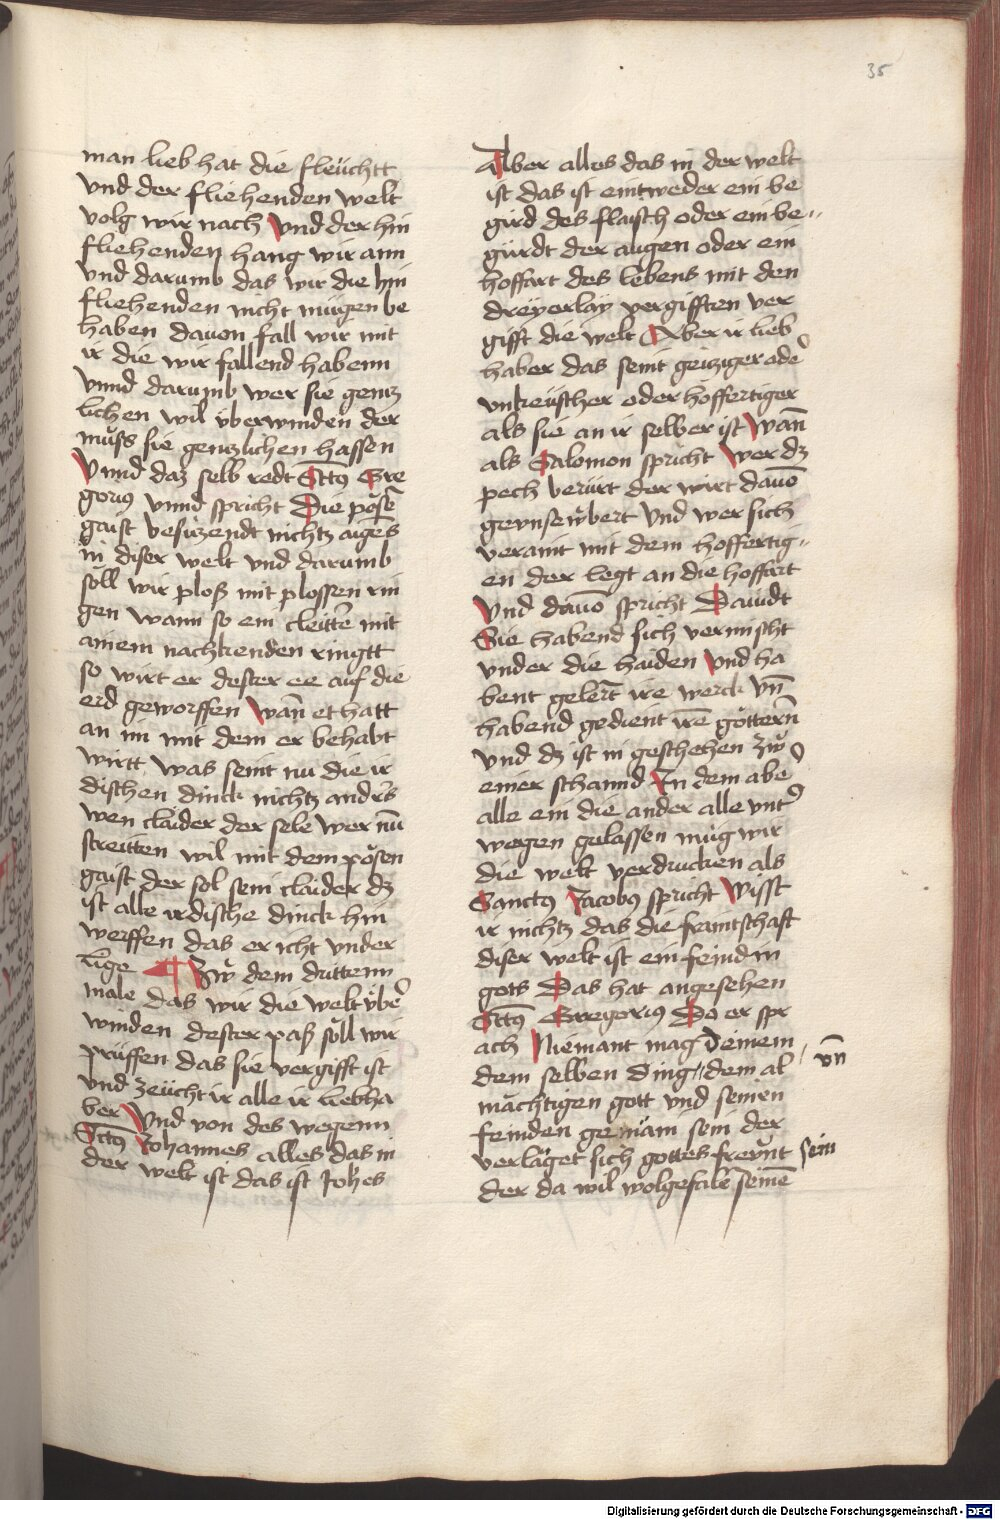 35
man lieb hat die fleüchtt
vnd der fliehenden welt
volg wir nach Vnd der hin
fliehenden hang wir ann
vnd darumb das wir die hin
fliehenden nicht mügen be
haben dauon fall wir mit
ir die wir fallend habenn
vnnd darumb wer sie gentz
lichen wil überwinden der
muͦss sie gentzlichen hassen
Vnnd daz selb redt Sctꝰ Gre
goriꝰ vnnd spricht Die pösen̄
gaist besitzendt nichtz aigēs
in diser welt vnd darumb
söll wir ploß mit plossen rin
gen wann so ein cleittͤ mit
ainem nachkenden ringtt
so wirt er dester ee auf die
erd geworffen Wan̄ et hatt
an im mit dem er behabt
wirtt was seint nu die ir
dischen dinck nichtz andrs
wen claider der sele wer nū
streitten wil mit dem pösen
gaist der sol sein claider dz
ist alle irdische dinck hin
werffen das er icht vnder
lige ¶ Zw̌ dem drittenn
male das wir die welt übe᷑
winden dester paß söll wir
prüffen das sie vergifft ist
vnd zeücht ir alle ir liebha
ber Vnd von des wegenn
Sctꝰ Johannes alles das in
der welt ist das ist Joh̄es
Alber alles das in der welt
ist das ist eintweder ein be
gird des flaisch oder ein be〃
gürdt der augen oder ein
hoffart des lebens mit den
dreyerlay vergifften ver
gifft die welt Aber ir lieb
haber das seint geiziger ode᷑
vnkeüscher oder höffertiger
als sie an ir selber ist Wan̄
als Salomon spricht Wer dz
pech berürt der wirt dauō
gevnsew̌bert Vnd wer sich
veraint mit dem hoffertig〃
en der legt an die hoffart
Vnd dauō spricht Dauidt
Sie habend sich vermischt
vnder die haiden Vnd ha
bent gelert̄ ire werck vn̄
habend gedient irē göttern̄
vnd dz ist in geschehen zw̌
einer schannd In dem abe᷑
alle ein die ander alle vnt᷑
wegen gelassen müg wir
die welt verdrucken als
Sanctꝰ Jacobꝰ spricht Wisst
ir nichtz das die frainttschaft
diser welt ist ein feindin
gots Das hat angesehen
Sctꝰ Gregoriꝰ Do er spr
ach Niemant mag deinem
dem selben ding〃 dem al vn̄
mächtigen gott vnd seinen
feinden genäm sein der
verläget sich gottes freẅnt sein
der da wil wolgefalē seinē
Digitalisierung gefördert durch die Deutsche Forschungsgemeinschaft - DFG